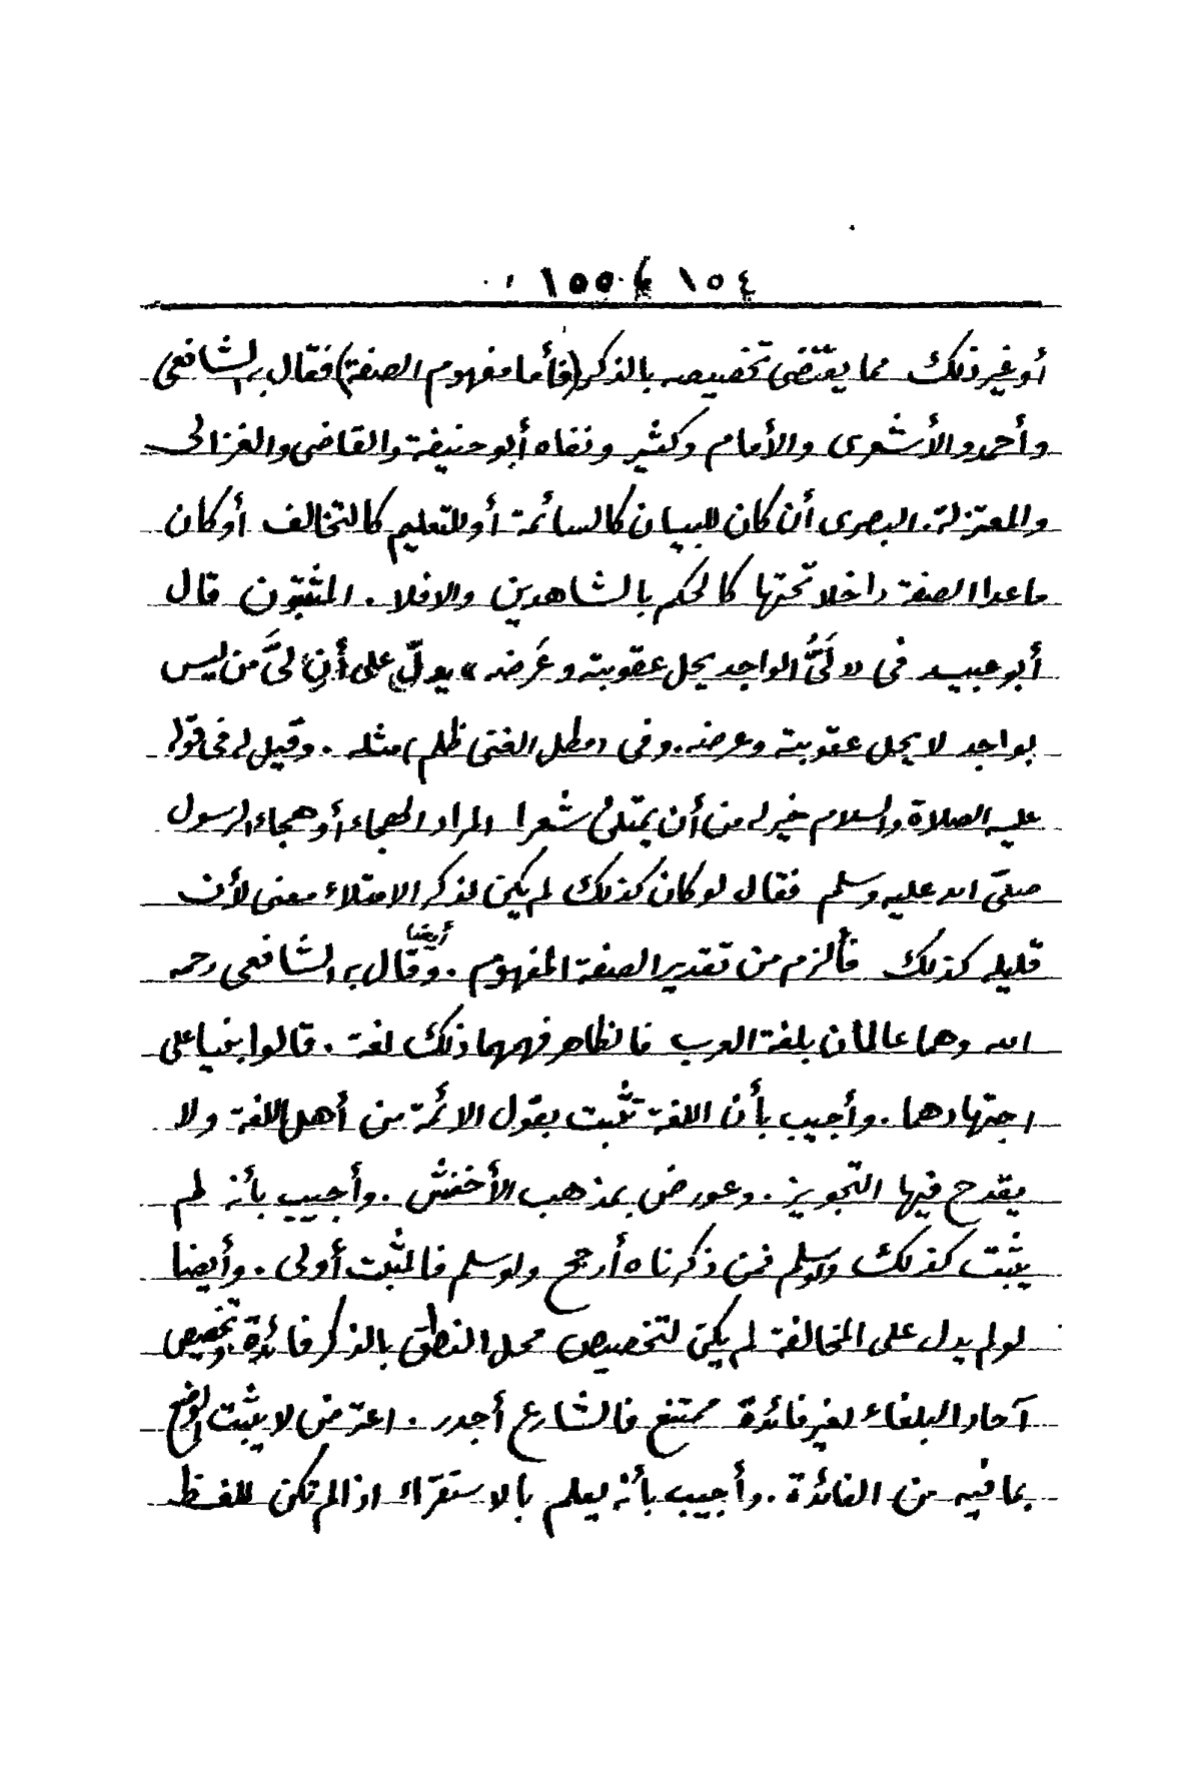 ١٥٤ ١٥٥
أو غير ذلك مما يقتضى تخصيصه بالذكر (فأما مفهوم الصفة) فقال به الشافعى
وأحمد والأشعرى والأمام وكثير ونفاه أبو حنيفة والقاضى والغزالى
والمعتزلة. البصرى أن كان للبيان كالسائمة أو للتعليم كالتخالف أو كان
ما عدا الصفة داخلا تحتها كالحكم بالشاهدين والا فلا . المثبتون قال
أبو عبيد فى «لَىُّ الواجد يحل عقوبته وعَرضه» يدلّ على أن لىَّ من ليس
بواجد لا يحل عقوبته وعرضه. وفى «مطل الغنى ظلم» مثله . وقيل له فى قوله
عليه الصلاة والسلام خير له من أن يمتلئ شعرا المراد الهجاء أو هجاء الرسول
صلّى الله عليه وسلم فقال لو كان كذلك لم يكن لذكر الامتلاء معنى لأن
قليله كذلك فألزم من تقدير الصفة المفهوم . وقال به الشافعى أيضا رحمه
الله وهما عالمان بلغة العرب فالظاهر فهمهما ذلك لغة . قالوا بنيا على
اجتهادهما . وأجيب بأن اللغة تثبت بقول الائمة من أهل اللغة ولا
يقدح فيها التجويز . وعورض بمذهب الأخفش . وأجيب بأنه لم
يثبت كذلك ولو سلم فمن ذكرناه أرجح ولو سلم فالمثبت أولى . وأيضا
لو لم يدل على المخالفة لم يكن لتخصيص محل النطق بالذكر فائدة وتخصيص
آحاد البلغاء لغير فائدة ممتنع فالشارع أجدر . اعترض لا يثبت الوضع
بما فيه من الفائدة . وأجيب بأنه يعلم بالاستقراء اذا لم تكن للفظ